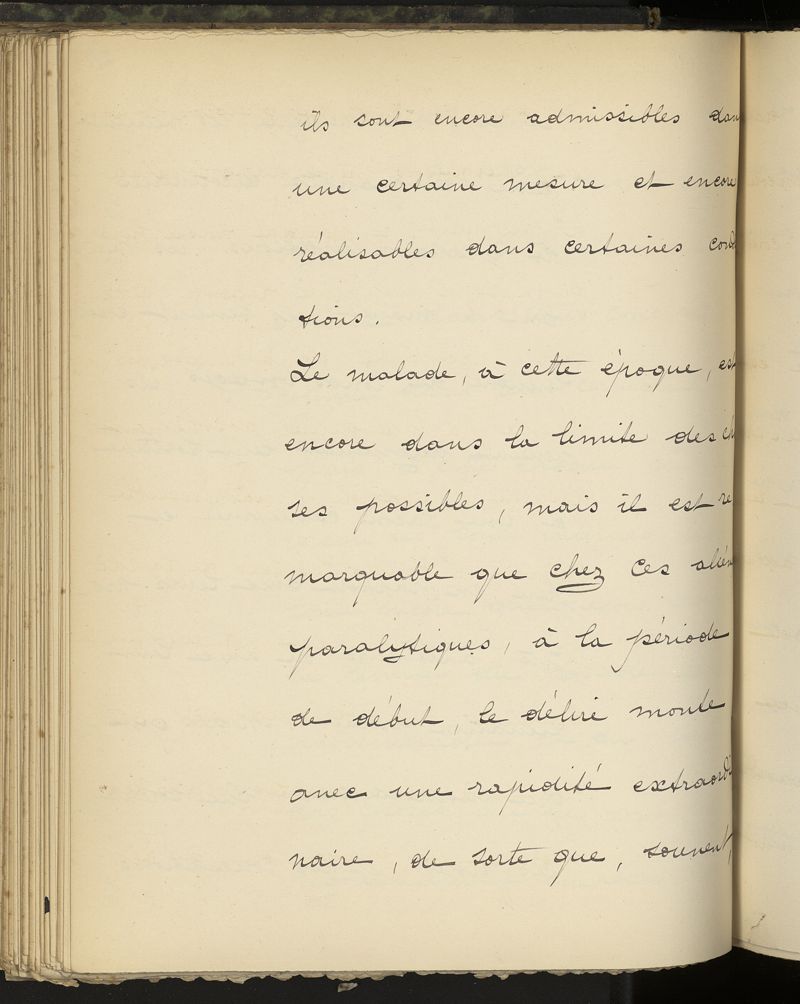 ils sont encore admissibles dan
une certaine mesure et encore
réalisables dans certaines condi
tions.
Le malade, à cette époque, est
encore dans la limite des ch
ses possibles, mais il est re
marquable que chez ces alién
paralytiques, à la période
de début, le délire monte
avec une rapidité extraordi
naire, de sorte que, souvent,